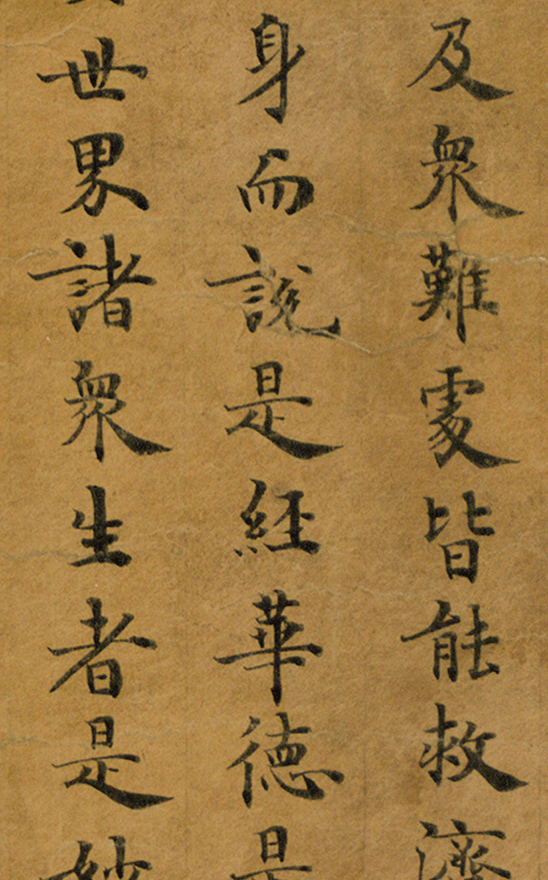 及衆難處皆能救濟
身而說是經華德是
世界諸衆生者是妙